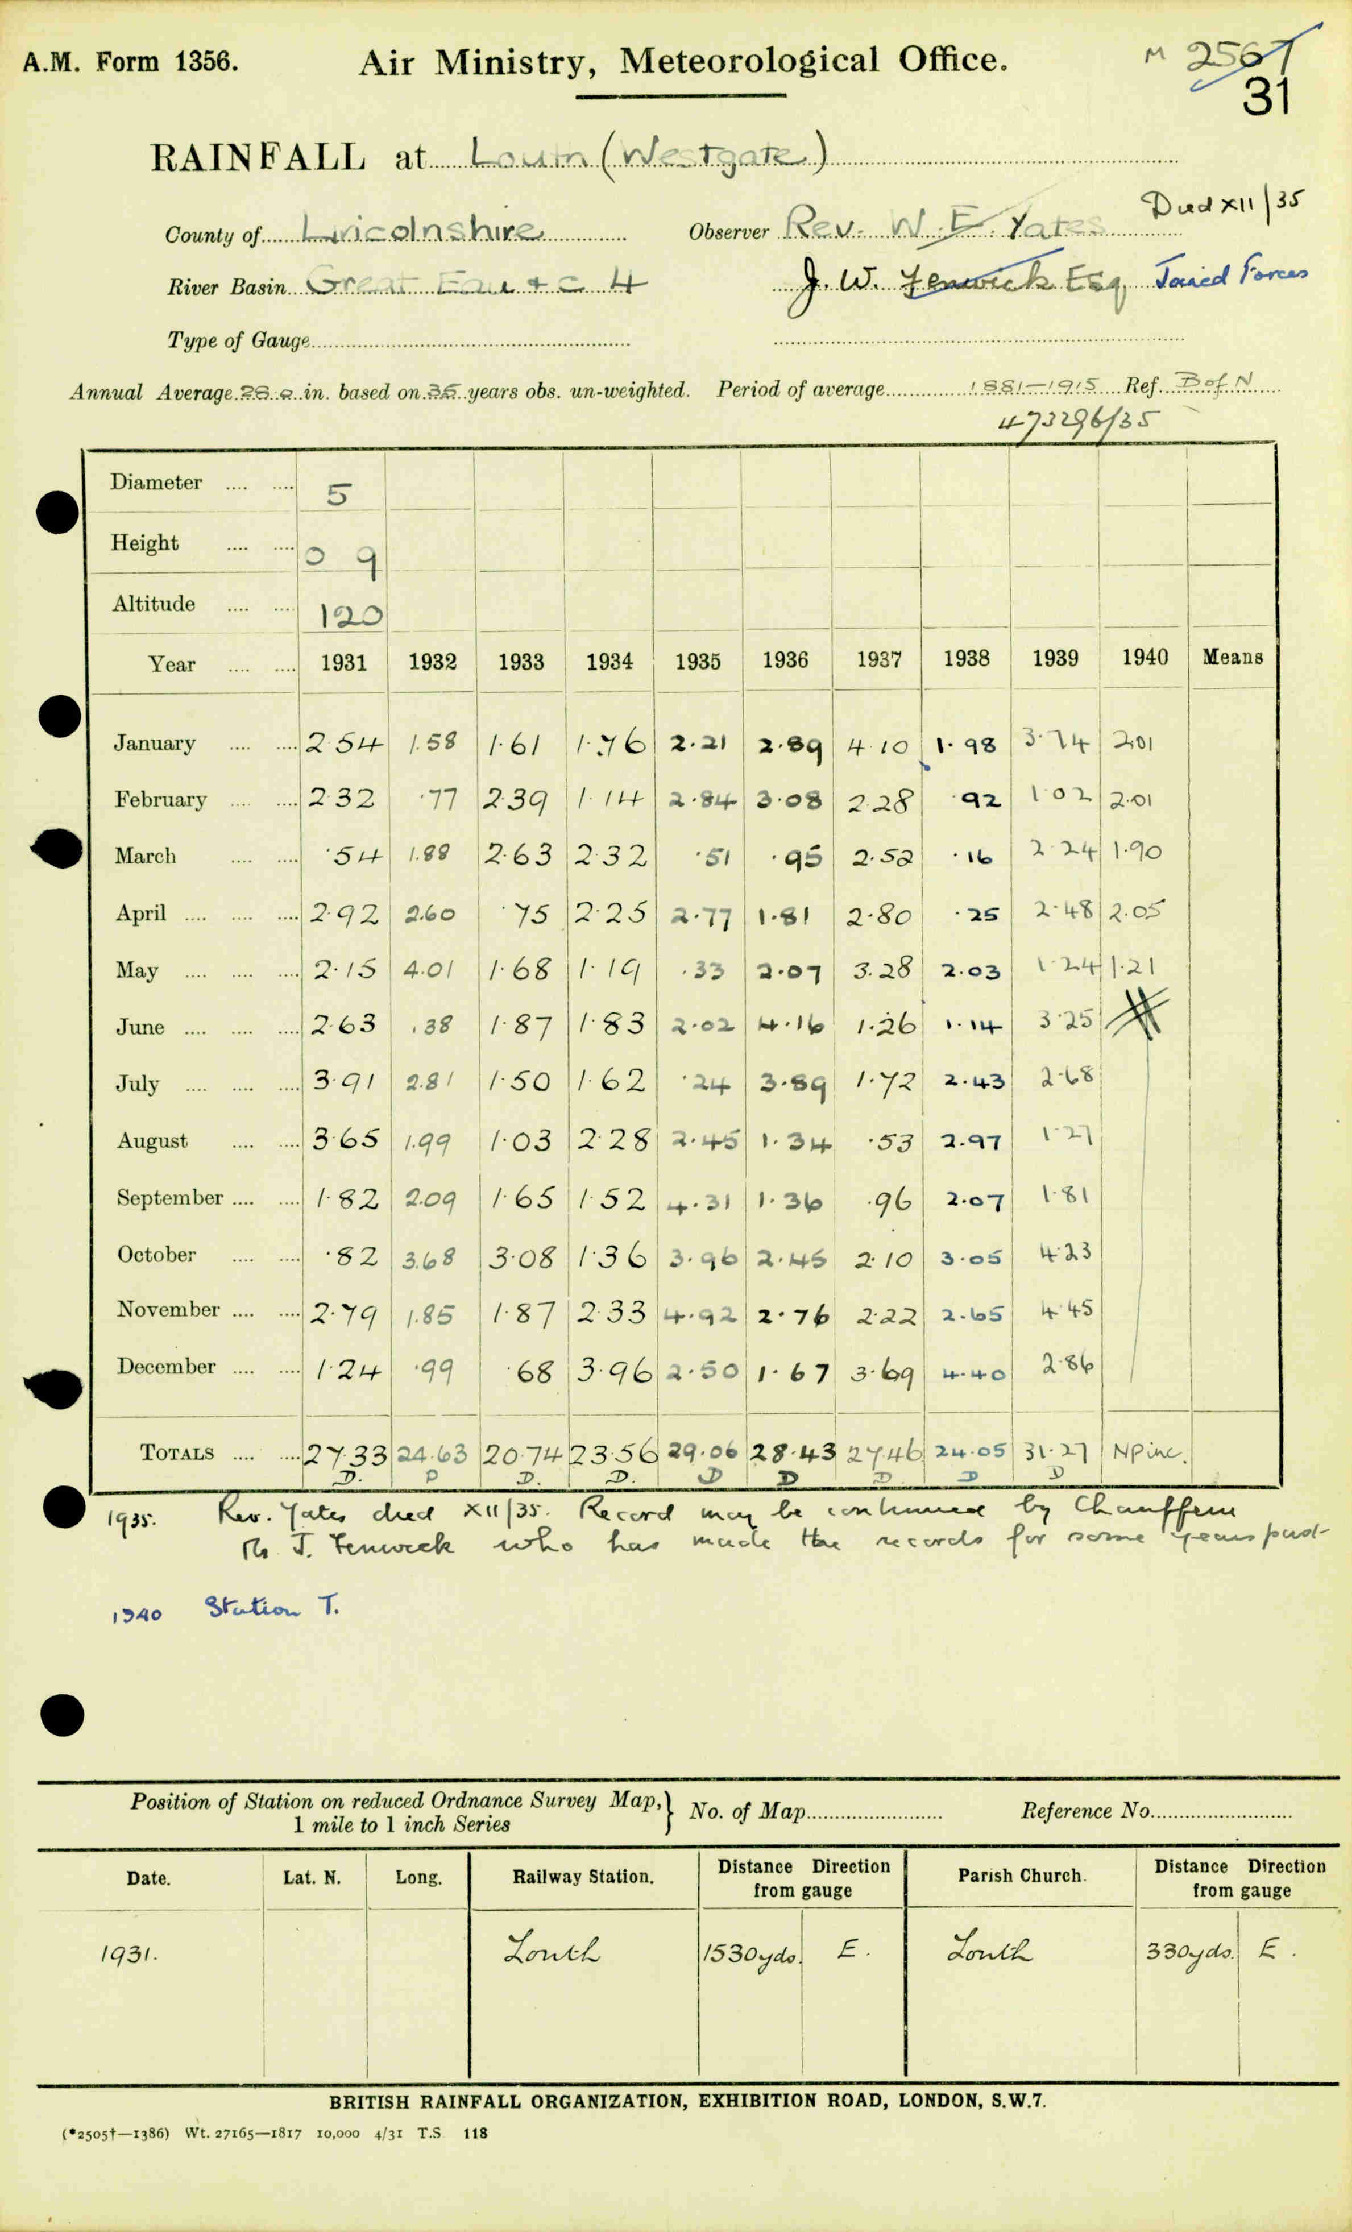 A.M. Form 1356. Air Ministry, Meteorological Office. M 2567
31
RAINFALL at Louth (Westgate)
County of Lincolnshire Observer Rev. W. E. Yates Died XII/35
River Basin Great Eau & c 4 J. W. Fenwick Esq. Joined Forces
Type of Gauge
Annual Average in. based on 35 years obs. un-weighted. Period of average 1881-1915 Ref. B of N
473296/35
Diameter 5
Height 0 9
Altitude 120
Year 1931 1932 1933 1934 1935 1936 1937 1938 1939 1940 Means
January 2.54 1.58 1.61 1.76 2.21 2.89 4.10 1.98 3.74 2.01
February 2.32 .77 2.39 1.14 2.84 3.08 2.28 .92 1.02 2.01
March .54 1.88 2.63 2.32 .51 .95 2.52 .16 2.24 1.90
April 2.92 2.60 .75 2.25 2.77 1.81 2.80 .25 2.48 2.05
May 2.15 4.01 1.68 1.19 .33 2.07 3.28 2.03 1.24 1.21
June 2.63 .38 1.87 1.83 2.02 4.16 1.26 1.14 3.25
July 3.91 2.81 1.50 1.62 .24 3.89 1.72 2.43 2.68
August 3.65 1.99 1.03 2.28 2.45 1.34 .53 2.97 1.27
September 1.82 2.09 1.65 1.52 4.31 1.36 .96 2.07 1.81
October .82 3.68 3.08 1.36 3.96 2.45 2.10 3.05 4.23
November 2.79 1.85 1.87 2.33 4.92 2.76 2.22 2.65 4.45
December 1.24 .99 .68 3.96 2.50 1.67 3.69 4.40 2.86
TOTALS 27.33 24.63 20.74 23.56 29.06 28.43 27.46 24.05 31.27 NP inc.
D. D D. D. D D D D D
1935. Rev. Yates died XII/35. Record may be continued by Chauffeur
Mr J. Fenwick who has made the records for some years past
1940 Station T.
Position of Station on reduced Ordnance Survey Map, } No. of Map Reference No.
1 mile to 1 inch Series
Date. Lat. N. Long. Railway Station. Distance Direction from gauge Parish Church. Distance Direction from gauge
1931. Louth 1530 yds. E. Louth 330 yds. E.
BRITISH RAINFALL ORGANIZATION, EXHIBITION ROAD, LONDON, S.W.7.
(*2505†—1386) Wt. 27165—1817 10,000 4/31 T.S. 118